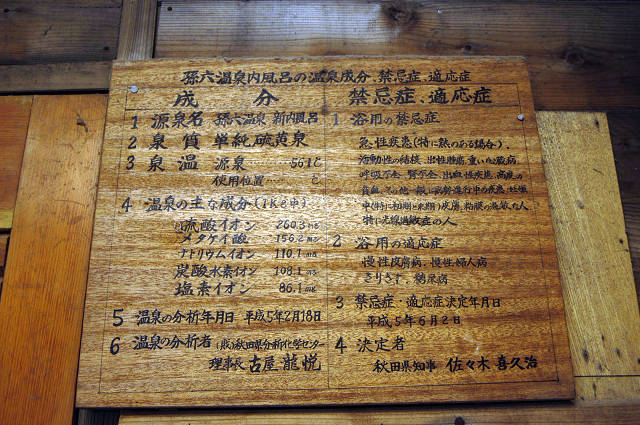 孫六温泉内風呂の温泉成分、禁忌症、適応症
成分
1 源泉名 孫六温泉 新内風呂
2 泉質 単純硫黄泉
3 泉温 源泉……56.1℃
使用位置……℃
4 温泉の主な成分(1kg中)
硫酸イオン 260.3mg
メタケイ酸 156.2mg
ナトリウムイオン 110.1mg
炭酸水素イオン 108.1mg
塩素イオン 86.1mg
5 温泉の分析年月日 平成5年2月18日
6 温泉の分析者 (財)秋田県分析化学センター
理事長 古屋 龍悦
禁忌症、適応症
1 浴用の禁忌症
急性疾患(特に熱のある場合)、
活動性の結核、悪性腫瘍、重い心臓病
呼吸不全、腎不全、出血性疾患、高度の
貧血、その他一般に病勢進行中の疾患、妊娠
中(特に初期と末期)皮膚、粘膜の過敏な人
特に光線過敏症の人
2 浴用の適応症
慢性皮膚病、慢性婦人病
きりきず、糖尿病
3 禁忌症・適応症決定年月日
平成5年6月2日
4 決定者
秋田県知事 佐々木 喜久治